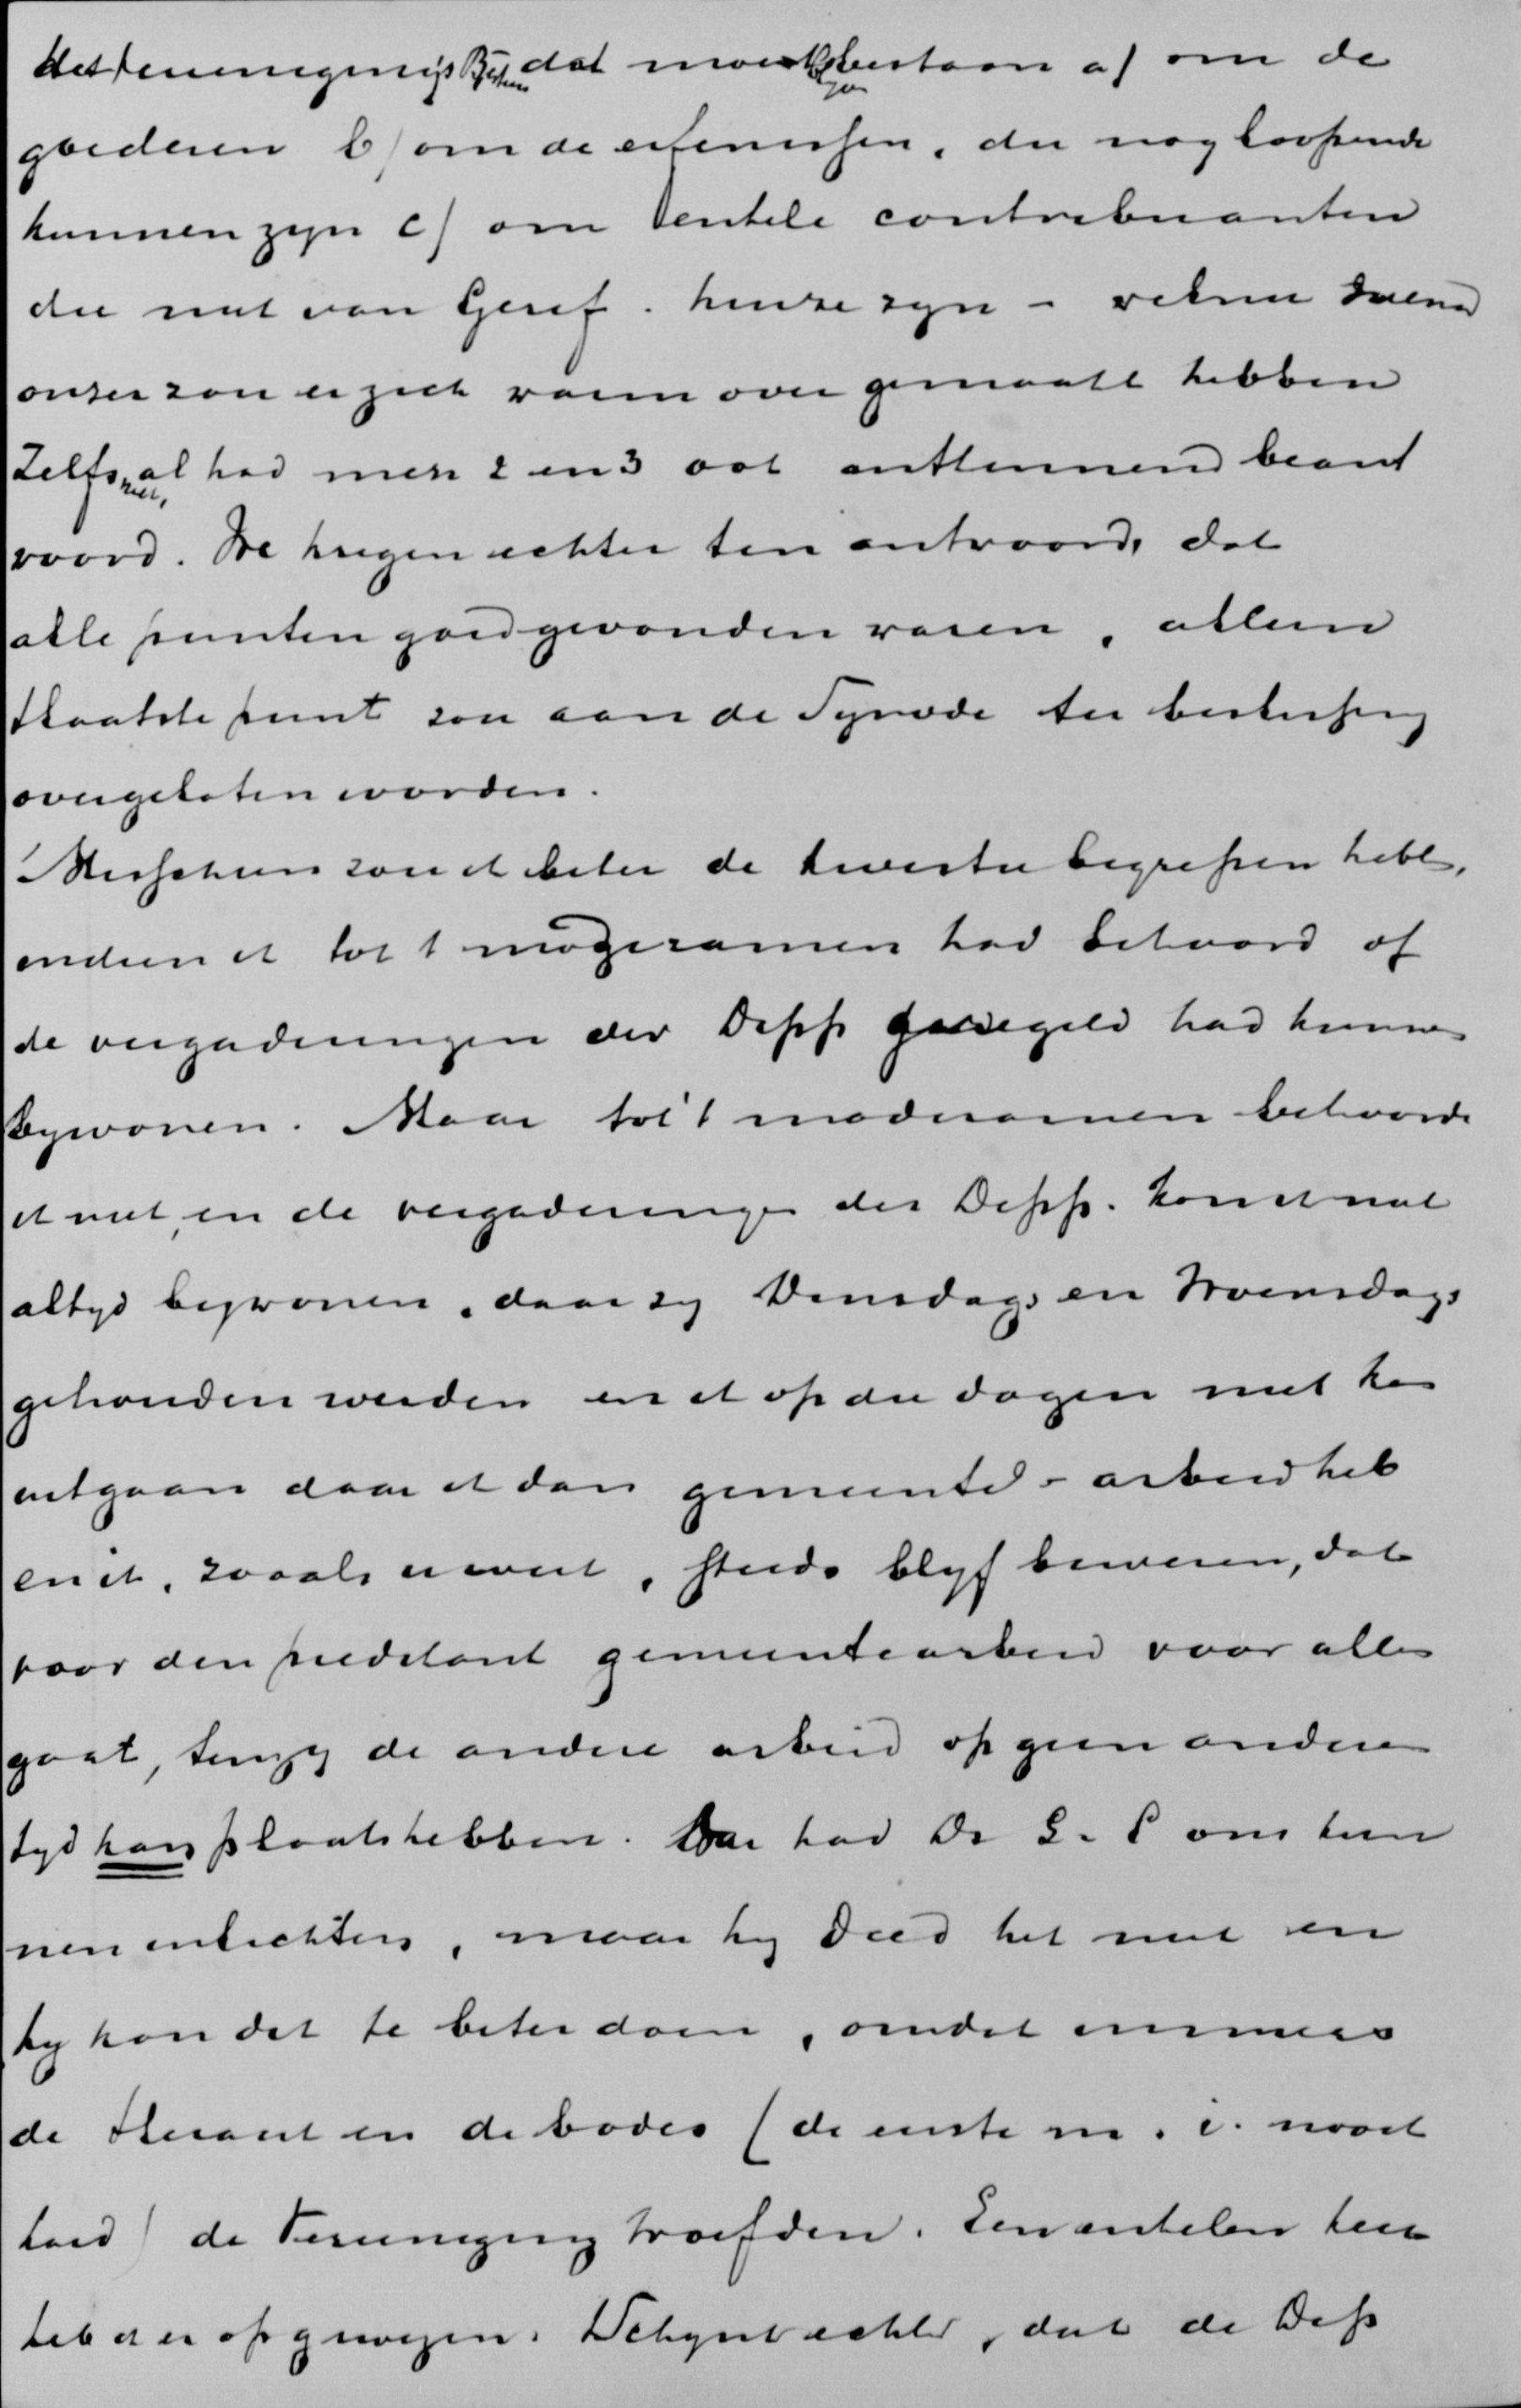 het vereenigings dat moest bestaan a) om de
goederen b) om de erfenissen, die nog loopende
kunnen zyn c) om enkele contribuanten
die niet van Geref. huize zyn –
onzer zou er zich warm over gemaakt hebben
Zelfs niet, al had men 2 en 3 ook ontkennend beant
woord. We kregen echter ten antwoord, dat
alle punten goedgevonden waren, alleen
't laatste punt zou aan de Synode ter beslissing
overgelaten worden.
Misschien zou ik beter de kwestie begrepen hebb,
indien ik tot 't moderamen had behoord of
de vergaderingen der Depp geregeld had kunnen
bywonen. Maar tot 't moderamen behoorde
ik niet, en de vergaderingen der Depp. kon ik niet
altyd bywonen, daar zy Dinsdags en Woensdags
gehouden werden en ik op die dagen niet kan
uitgaan daar ik dan gemeente-arbeid heb
en ik, zooals u weet, steeds blyf beweren, dat
voor den predikant gemeentearbeid voor alles
gaat, tenzy de andere arbeid op geen andere
tyd kan plaatshebben. Daar had Dr L. P ons kun
nen inlichten, maar hy deed het niet en
hy kon dat te beter doen, omdat immers
de Heraut en de bodes (de eerste m. i. nooit
hard) de Vereeniging troefden. Een enkelen keer
heb ik er op gewezen. 't Schynt echter, dat de Dep